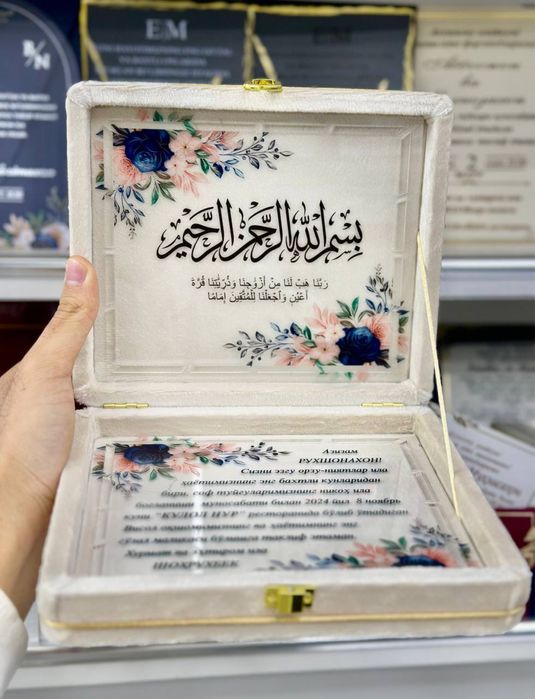 B/N
E|M
بِسْمِ اللهِ الرَّحْمٰنِ الرَّحِيْمِ
رَبَّنَا هَبْ لَنَا مِنْ أَزْوَاجِنَا وَذُرِّيَّتِنَا قُرَّةَ
أَعْيُنٍ وَاجْعَلْنَا لِلْمُتَّقِينَ إِمَامًا
Азизам
РУХШОНАХОН!
Сизни эзгу орзу-ниятлар ила
ҳаётимизнинг энг бахтли кунларидан
бири, соф туйғуларимизнинг никоҳ ила
боғланиши муносабати билан 2024 йил 8 ноябрь
куни "КУЛОЛ НУР" ресторанида бўлиб ўтадиган
Висол оқшомимизнинг ва ҳаётимнинг энг
гўзал маликаси бўлишга таклиф этаман.
Ҳурмат ва эҳтиром ила
ШОҲРУХБЕК